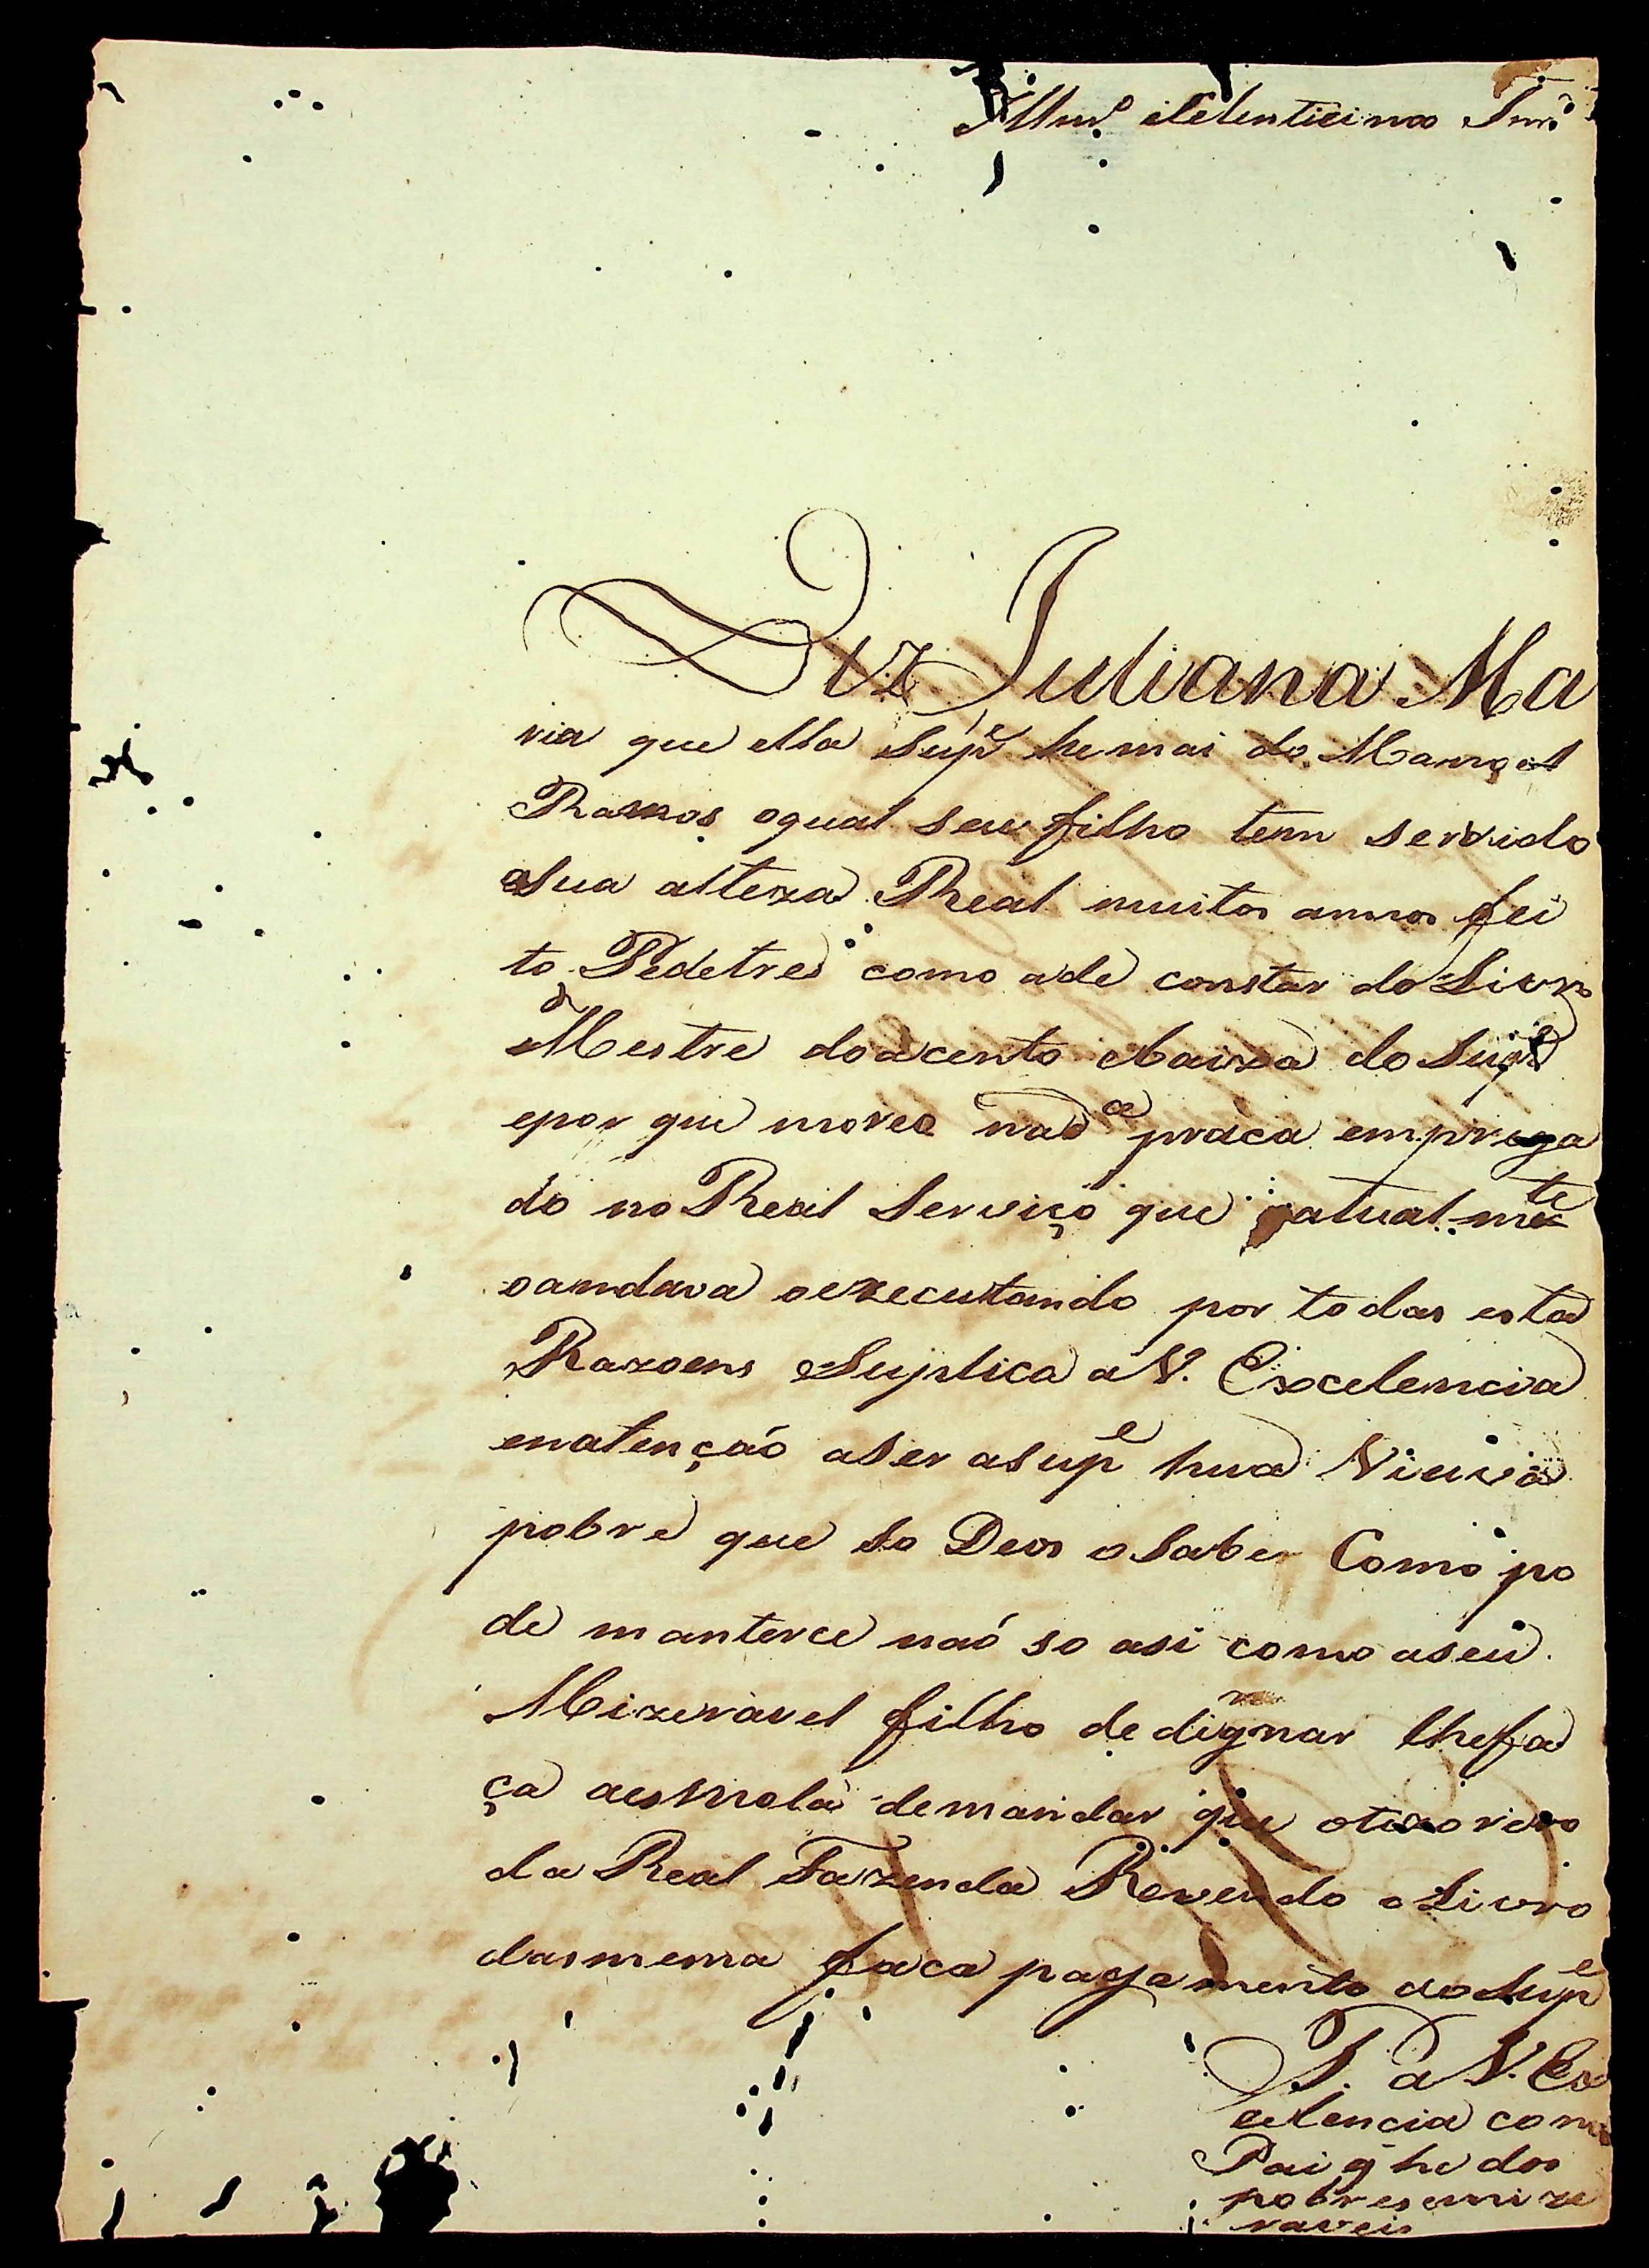 Illmo. elelenticimo Snr.
Diz Juliana Ma
ria que ella Supe he mai do Manoel
Ramos oqual seu filho tem servido
aSua alteza Real muitos annos fei
to Pedetres como ade constar do Livro
Mestre do acento ebaixa do Supe
epor que moreo na praca emprega
do no Real Serviço que atual mte
oandava oexecutando por todas esta
Razoens Suplica a V. Excelencia
ematenção aSer asupe hua Viuva
pobre que So Deos oSabe Como po
de manterce naó so asi como aseu
Mizeravel filho de dignar lhefa
ça aesmola demandar que otizoreiro
da Real Fazenda Revendo o Livro
dasmema faca pagamento aoSupe
P. a V. Ex
celencia como
Pai q̃ he dos
pobres emize
raveis